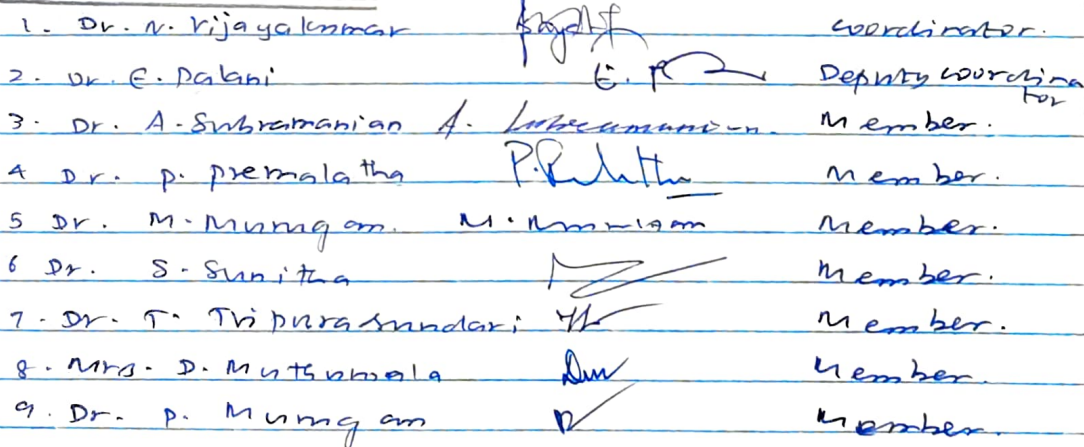 1. Dr. N. Vijayakumar coordinator.
2. Dr. E. Palani E. P Deputy coordina
tor
3. Dr. A. Subramanian A. Subramanian Member.
4 Dr. P. Premalatha Member.
5 Dr. M. Murugan. M. Murugan Member.
6 Dr. S. Sunitha Member.
7. Dr. T. Tripurasundari Member.
8. Mrs. D. Muthumala Member.
9. Dr. P. Murugan Member.